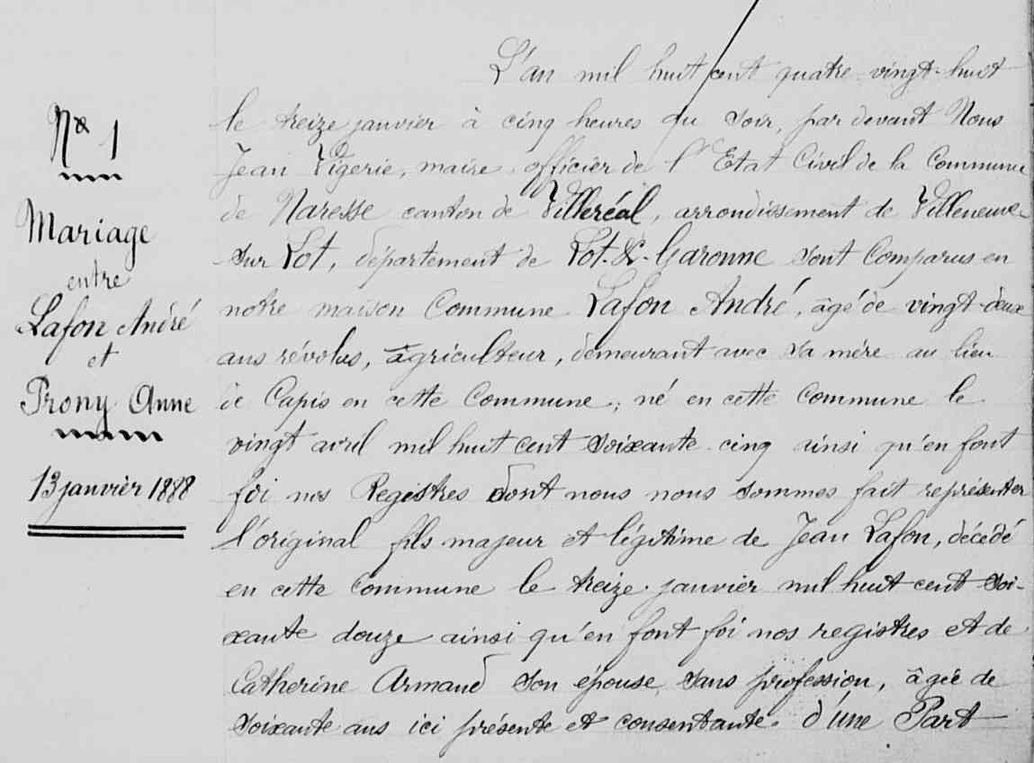 Nº 1
Mariage
entre
Lafon André
et
Prony Anne
13 janvier 1888
L'an mil huit cent quatre-vingt-huit
le treize janvier à cinq heures du soir, par devant Nous
Jean Vigerie, maire officier de l'Etat Civil de la Commune
de Naresse canton de Villeréal, arrondissement de Villeneuve-
sur Lot, département de Lot-&-Garonne sont Comparus en
notre maison Commune Lafon André, âgé de vingt-deux
ans révolus, agriculteur, demeurant avec sa mère au lieu
de Capis en cette Commune; né en cette commune le
vingt avril mil huit cent soixante-cinq ainsi qu'en font
foi nos Registres dont nous nous sommes fait représenter
l'original fils majeur et légitime de Jean Lafon, décédé
en cette Commune le treize janvier mil huit cent soi-
xante douze ainsi qu'en font foi nos registres et de
Catherine Armand son épouse sans profession, âgée de
soixante ans ici présente et consentante. d'une Part